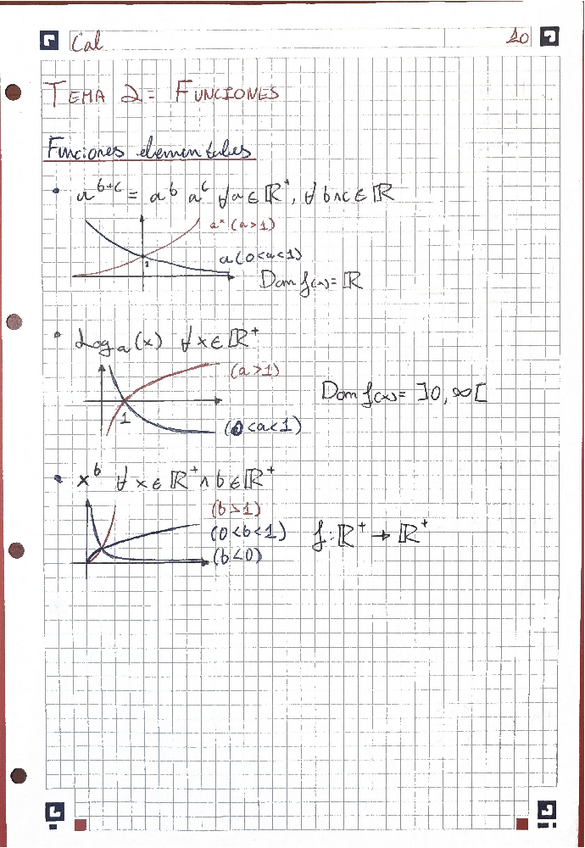 Cal 10
TEMA 2: FUNCIONES
Funciones elementales
• a^(b+c) = a^b a^c ∀a∈ℝ⁺, ∀b∧c∈ℝ
a^x (a>1)
a(0<a<1)
1
Dom f(x)=ℝ
• Log_a(x) ∀x∈ℝ⁺
(a>1)
Dom f(x)= ]0,∞[
1
(0<a<1)
• x^b ∀x∈ℝ⁺∧b∈ℝ⁺
(b>1)
(0<b<1) f:ℝ⁺→ℝ⁺
(b<0)